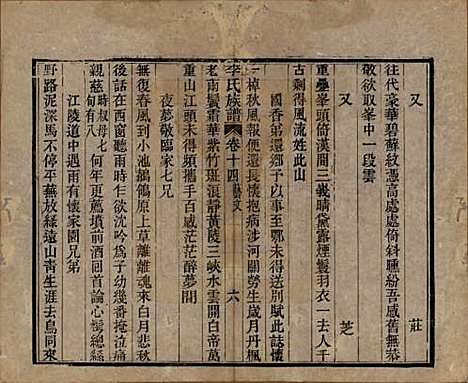 又　莊
往代豪華碧蘚紋憑高處處倚斜曛紛吾感舊無窮
敬欲取峯中一段雲
又　芝
重疊峯頭倚漢間三義晴黛露煙鬟羽衣一去人千
古剩得風流姓此山
國香弟還鄉予以事至鄂未得送別賦此誌懷
一棹秋風報便還長懷抱病涉河關勞生歲月丹楓
老南鬢霜華紫竹斑浪靜黃陵三峽水雲開白帝萬
重山江頭未得攜手百感茫茫醉夢間
夜夢敬臨家七兄
無復春風到小池鶺鴒原上草離離魂來白月悲秋
後話在西窗聽雨時乍欲沈吟爲子幼幾番掩泣痛
親慈時叔母七旬有八何年更薦墳前酒回首論心愴總絲
江陵道中遇雨有懷家園兄弟
野路泥深馬不停平蕪放綠遠山靑生涯去鳥同來
李氏族譜　卷十四藝文　六